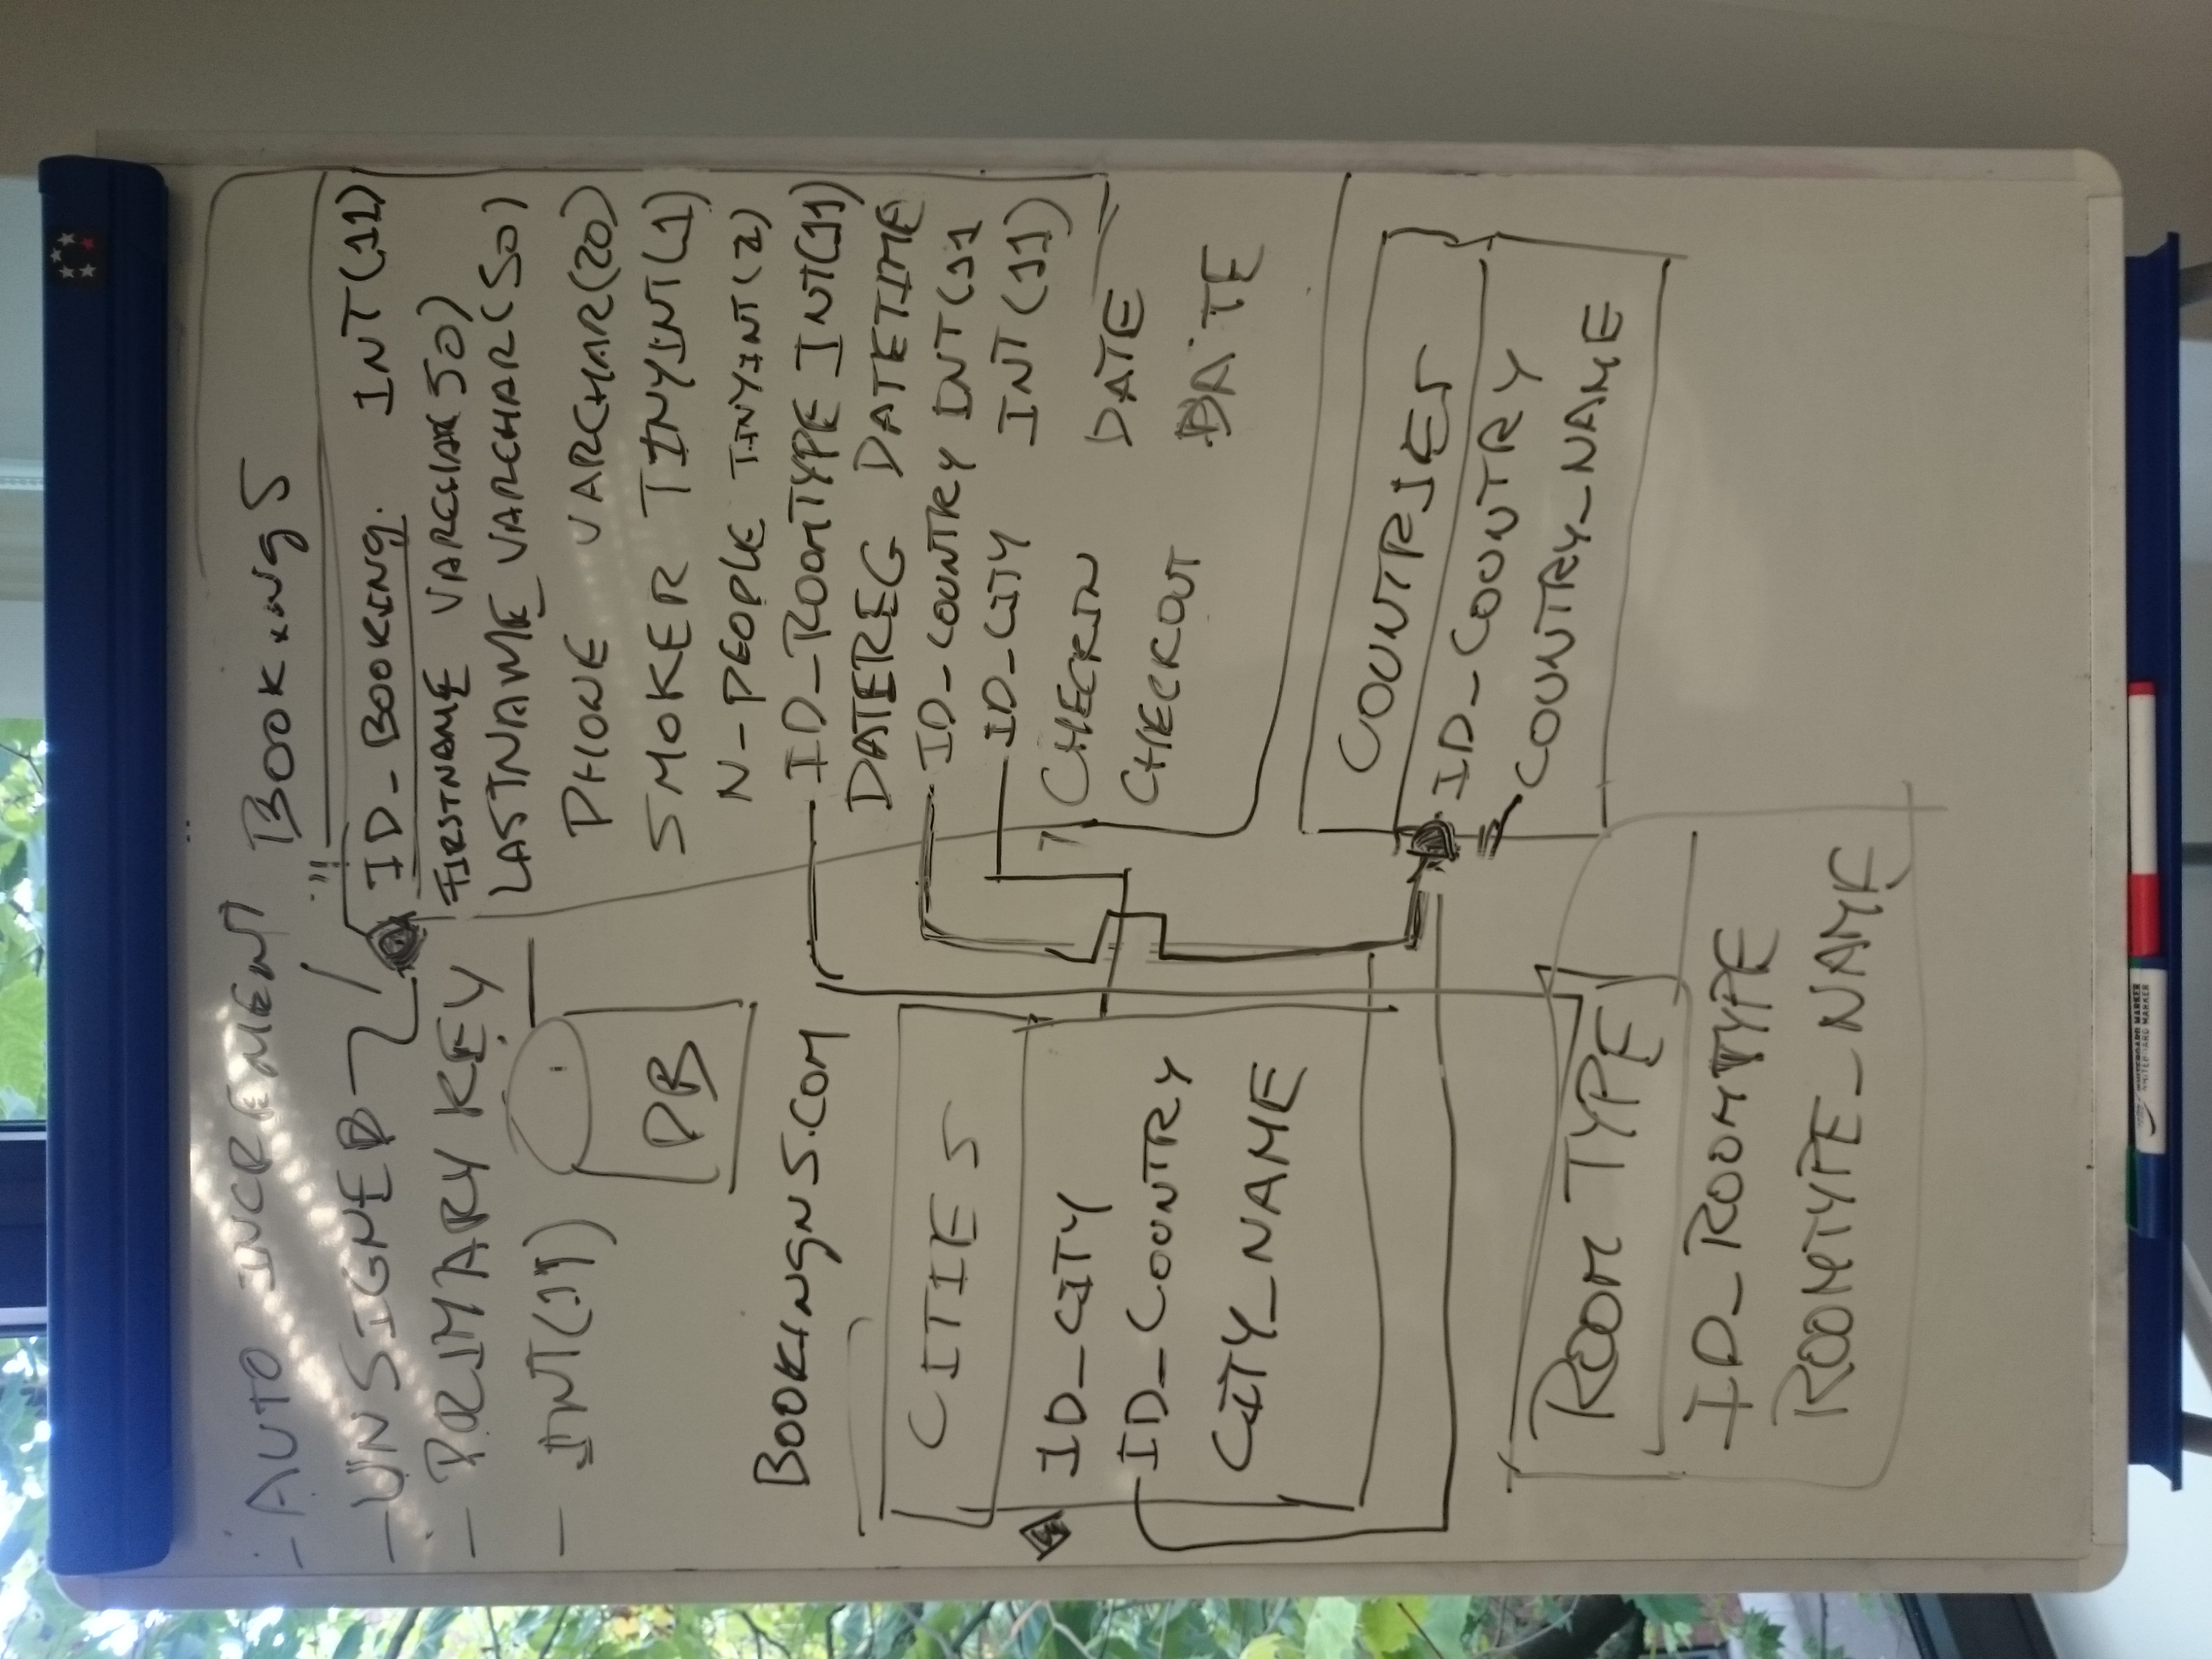 - AUTO INCREMENT
- UNSIGNED
- PRIMARY KEY
- INT(11)
DB
BOOKINGNS.COM
BOOKINGS
ID_BOOKING. INT(11)
FIRSTNAME VARCHAR 50)
LASTNAME VARCHAR(50)
PHONE VARCHAR(20)
SMOKER TINYINT(1)
N-PEOPLE TINYINT(2)
ID_ROOMTYPE INT(11)
DATEREG DATETIME
ID_COUNTRY INT(11
ID_CITY INT(11)
CHECKIN DATE
CHECKOUT DATE
CITIES
ID_CITY
ID_COUNTRY
CITY_NAME
COUNTRIES
ID_COUNTRY
COUNTRY_NAME
ROOM TYPE
ID_ROOMTYPE
ROOMTYPE_NAME
WHITEBOARD MARKER
WHITEBOARD MARKER